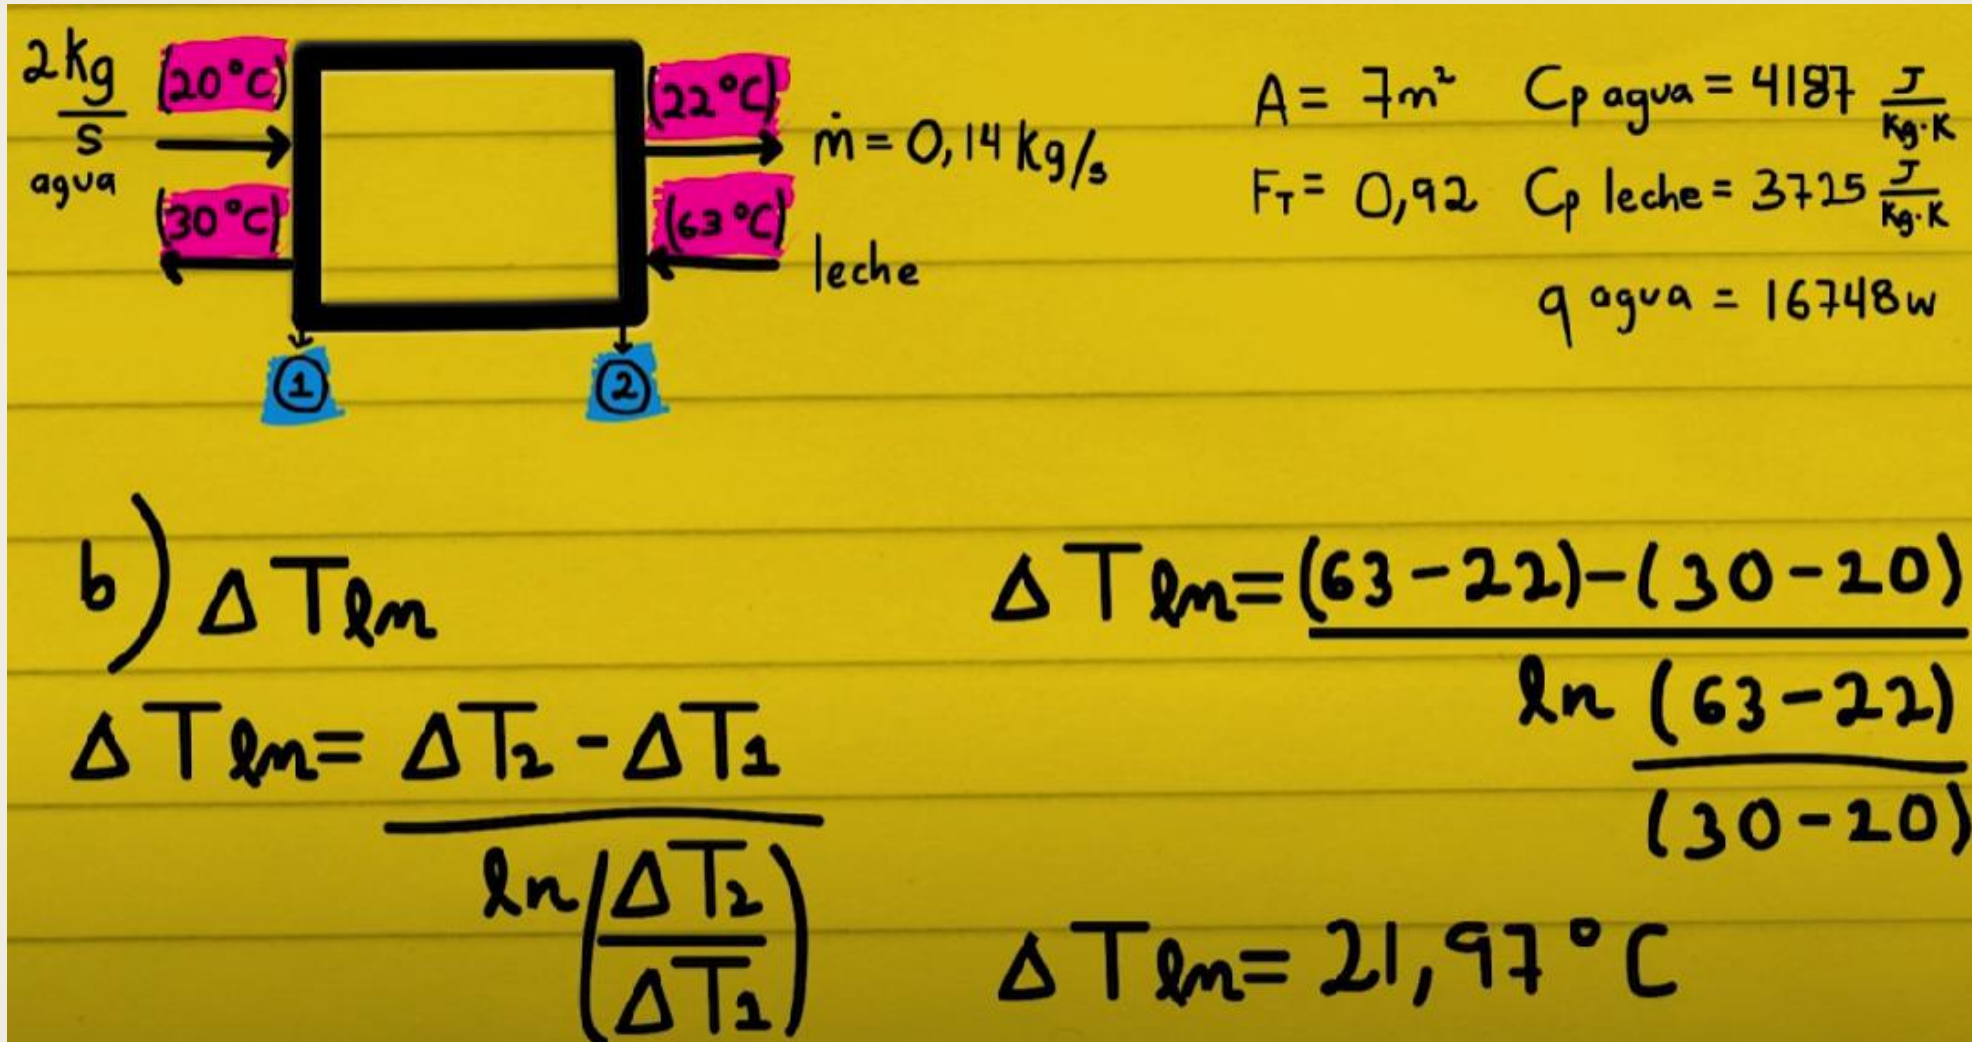 2kg/s (20°C) (22°C) ṁ = 0,14 kg/s
agua (30°C) (63°C) leche
A = 7m² Cp agua = 4187 J/Kg·K
F_T = 0,92 Cp leche = 3725 J/Kg·K
q agua = 16748w
1 2
b) ΔTlm
ΔTlm = ΔT₂ - ΔT₁ / ln(ΔT₂/ΔT₁)
ΔTlm = (63-22)-(30-20) / ln (63-22)/(30-20)
ΔTlm = 21,97°C